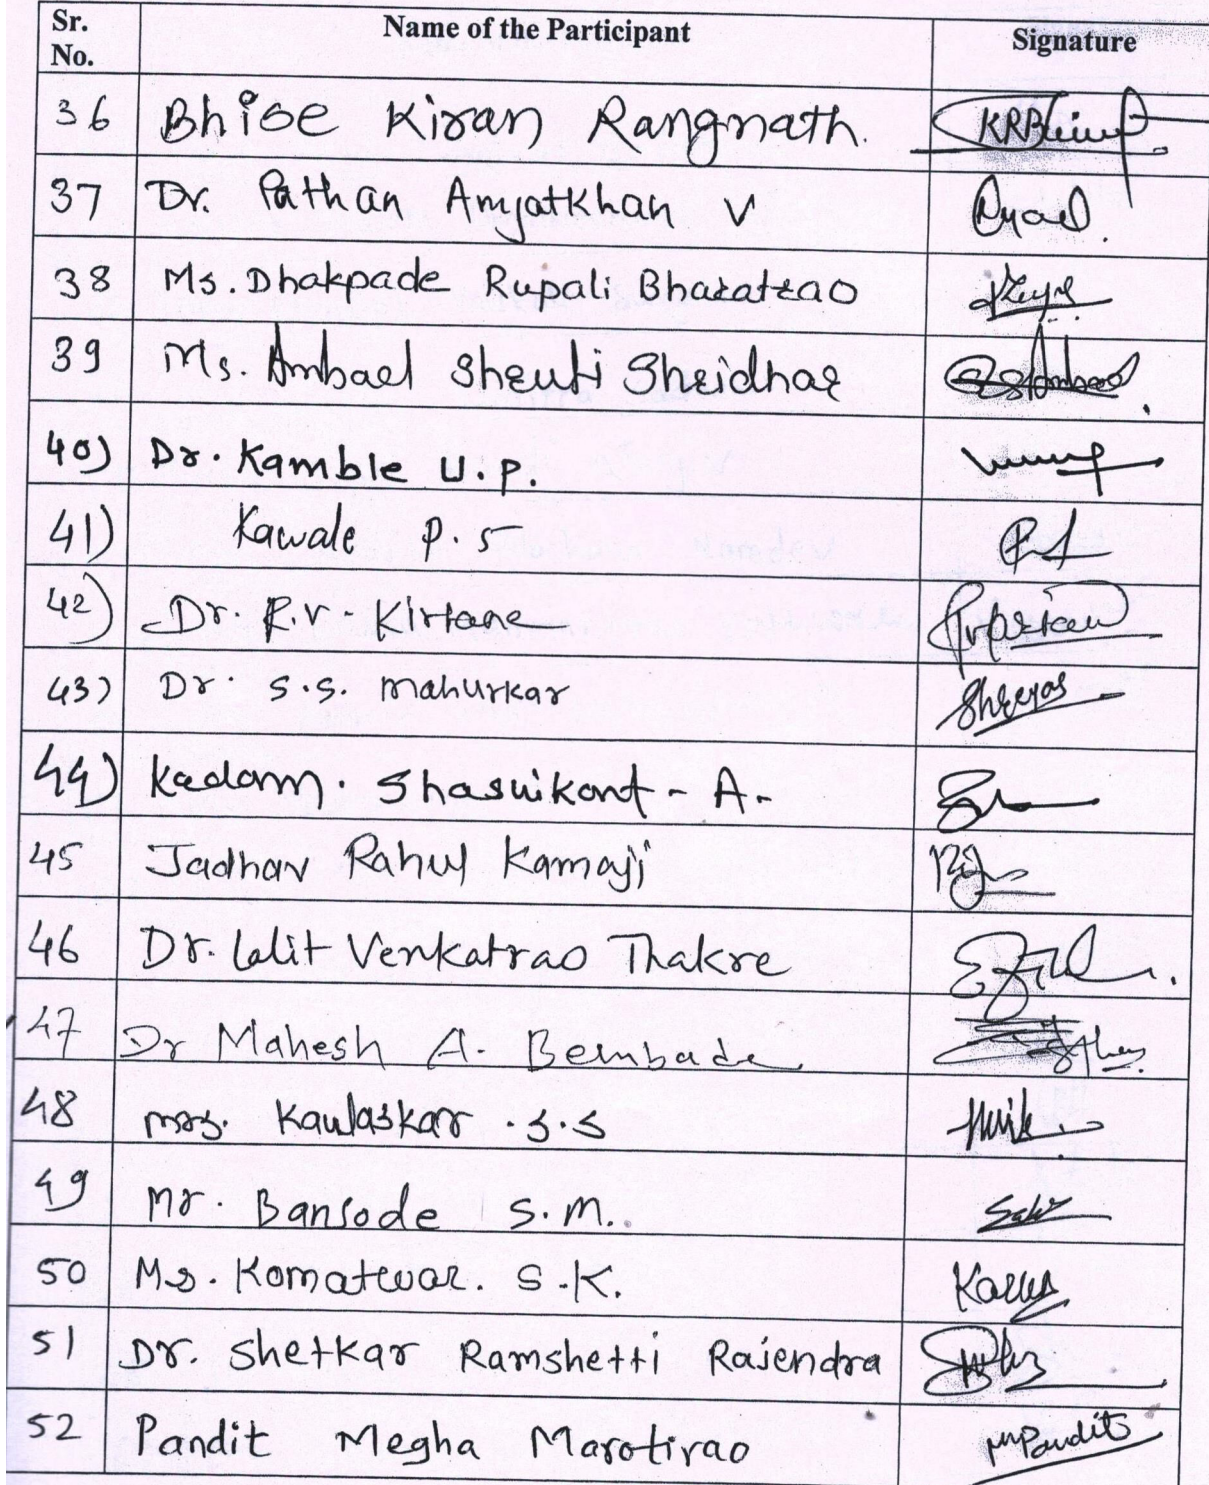 Sr. No. Name of the Participant Signature
36 Bhise Kiran Rangnath. KRBhise
37 Dr. Pathan Amjatkhan V
38 Ms. Dhakpade Rupali Bharatrao
39 Ms. Ambael Shruti Shridhar
40) Dr. Kamble U.P.
41) Kawale P.S
42) Dr. R.V. Kirtane
43) Dr. S.S. Mahurkar Shreyas
44) Kadam. Shasikant - A.
45 Jadhav Rahul Kamaji
46 Dr. Lalit Venkatrao Thakre
47 Dr Mahesh A. Bembade
48 Mrs. Kaulaskar .S.S
49 Mr. Bansode S.M.
50 Ms. Komatwar. S.K.
51 Dr. Shetkar Ramshetti Rajendra
52 Pandit Megha Marotirao MPandit